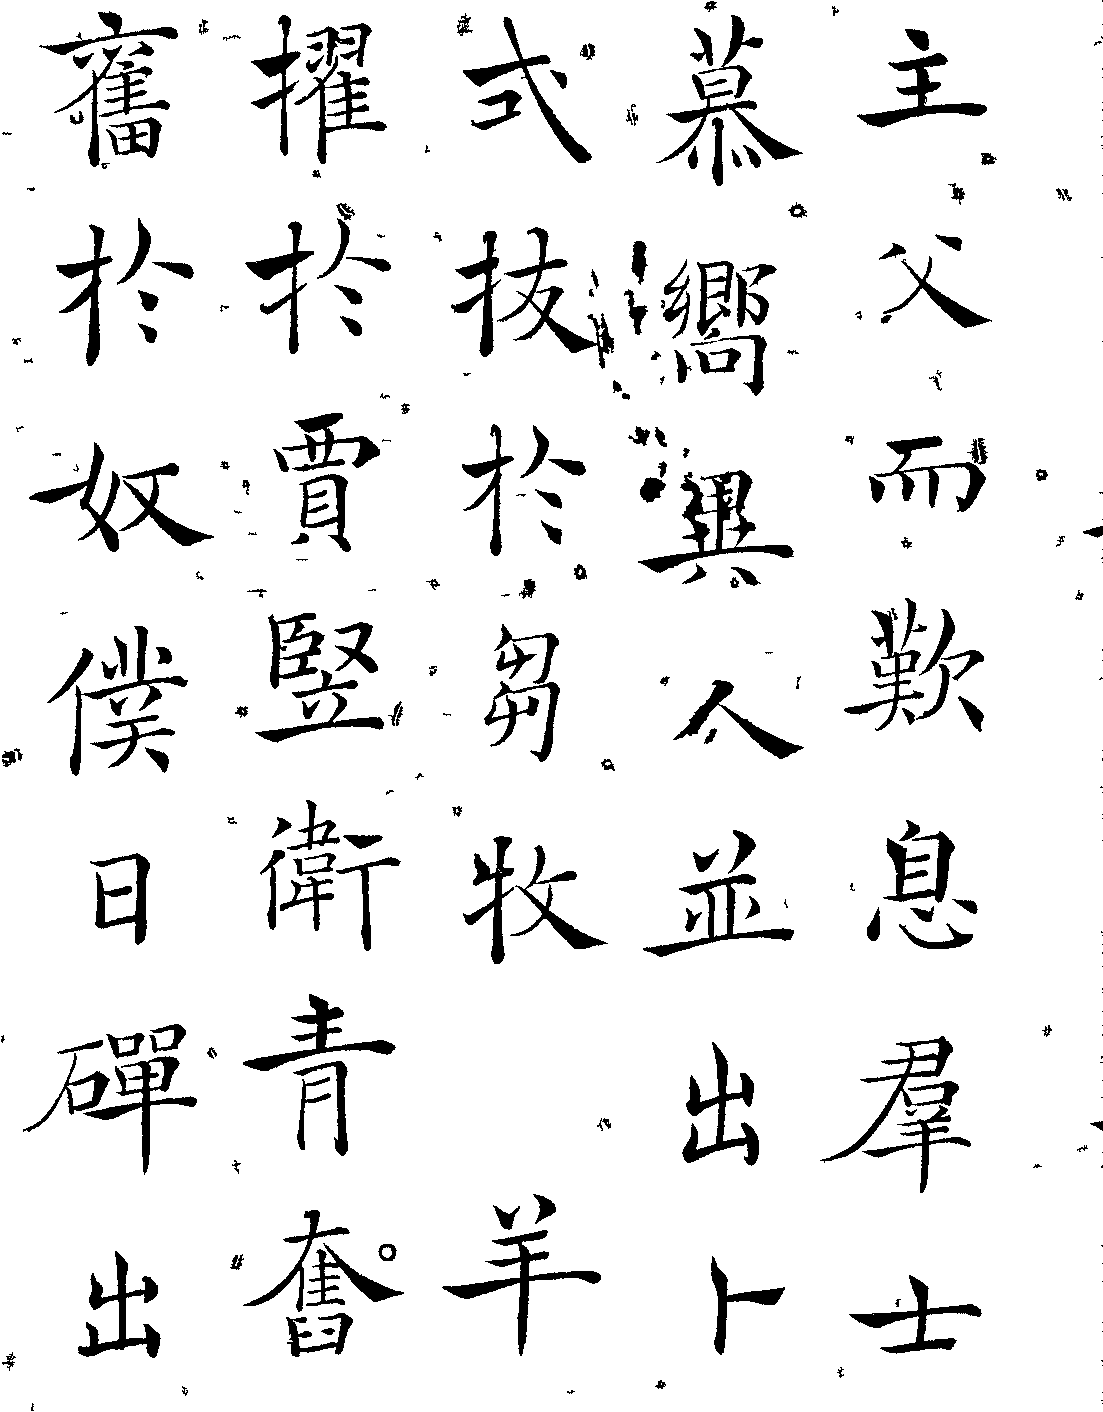 主父而歎息羣士
慕嚮異人並出卜
式拔於芻牧 羊
擢於賈豎衛青奮
奮於奴僕日磾出